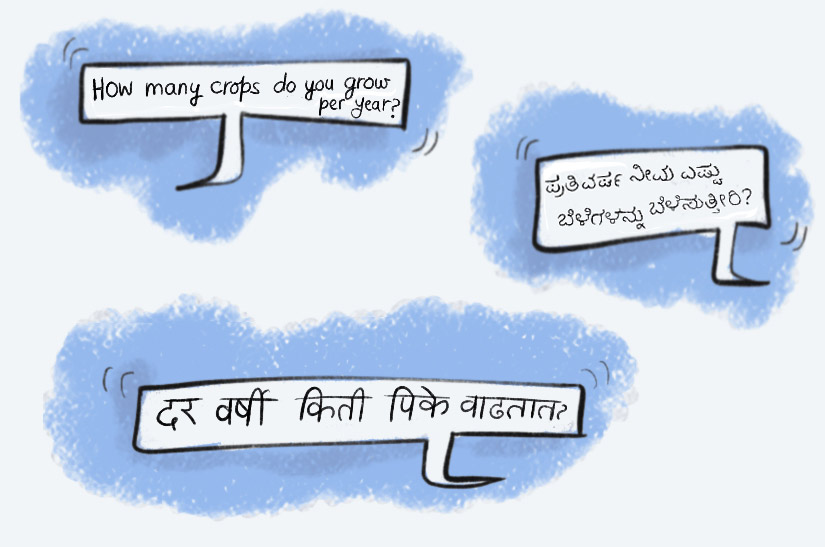 How many crops do you grow
per year?
ಪ್ರತಿವರ್ಷ ನೀವು ಎಷ್ಟು
ಬೆಳೆಗಳನ್ನು ಬೆಳೆಸುತ್ತೀರಿ?
दर वर्षी किती पिके वाढतात?